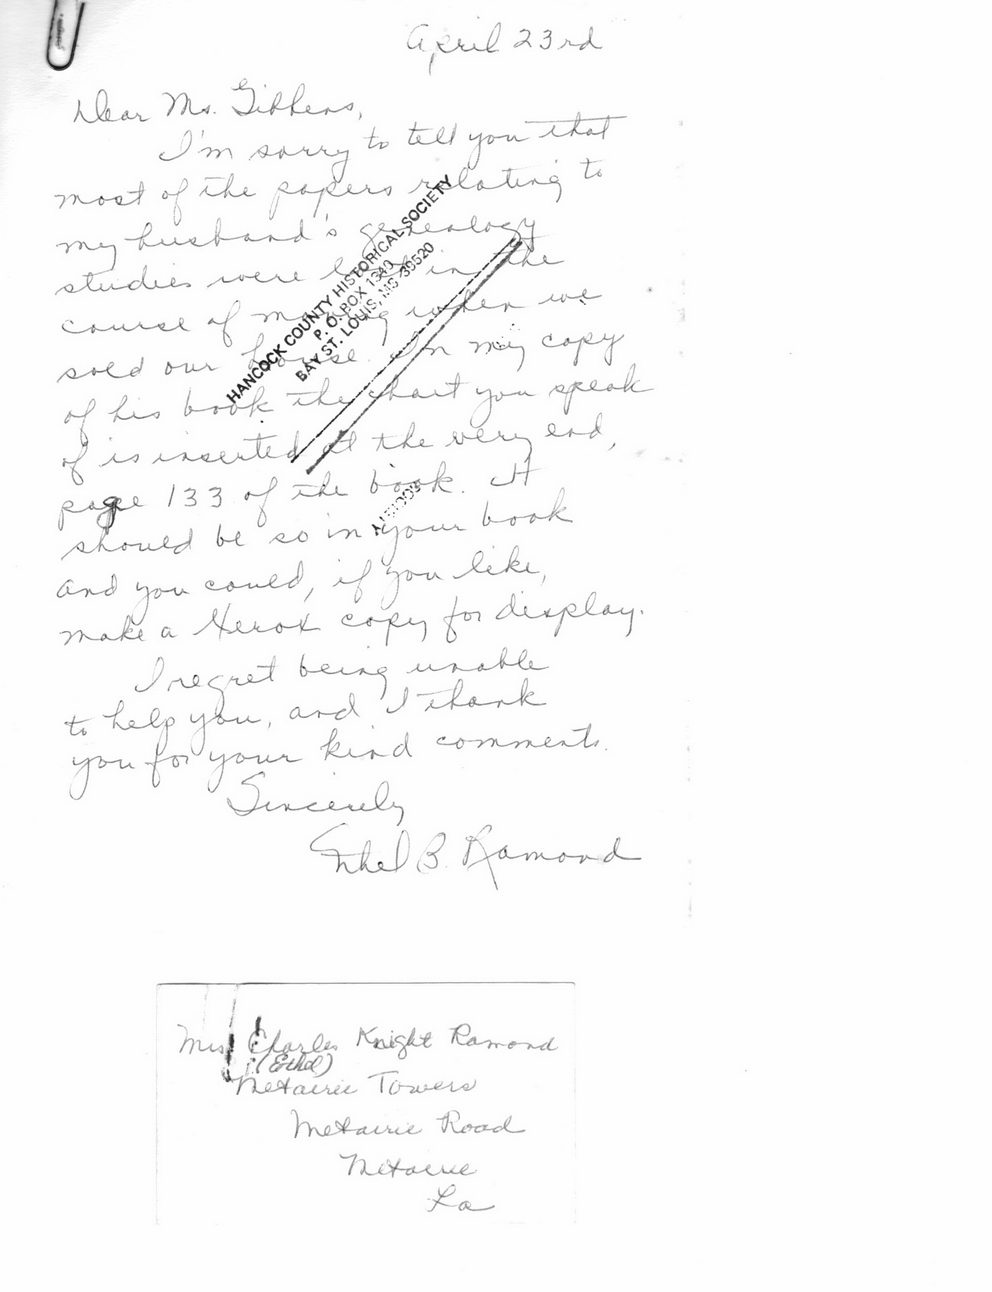 April 23rd
Dear Ms. Gibbens,
I'm sorry to tell you that
most of the papers relating to
my husband's genealogy
studies were lost in the
course of moving when we
sold our house. In my copy
of his book the chart you speak
of is inserted at the very end,
page 133 of the book. It
should be so in your book
and you could, if you like,
make a Xerox copy for display.
I regret being unable
to help you, and I thank
you for your kind comments.
Sincerely
Ethel B. Ramond
HANCOCK COUNTY HISTORICAL SOCIETY
P. O. BOX
BAY ST. LOUIS, MS 39520
Mrs Charles Knight Ramond
(Ethel)
Metairie Towers
Metairie Road
Metairie
La